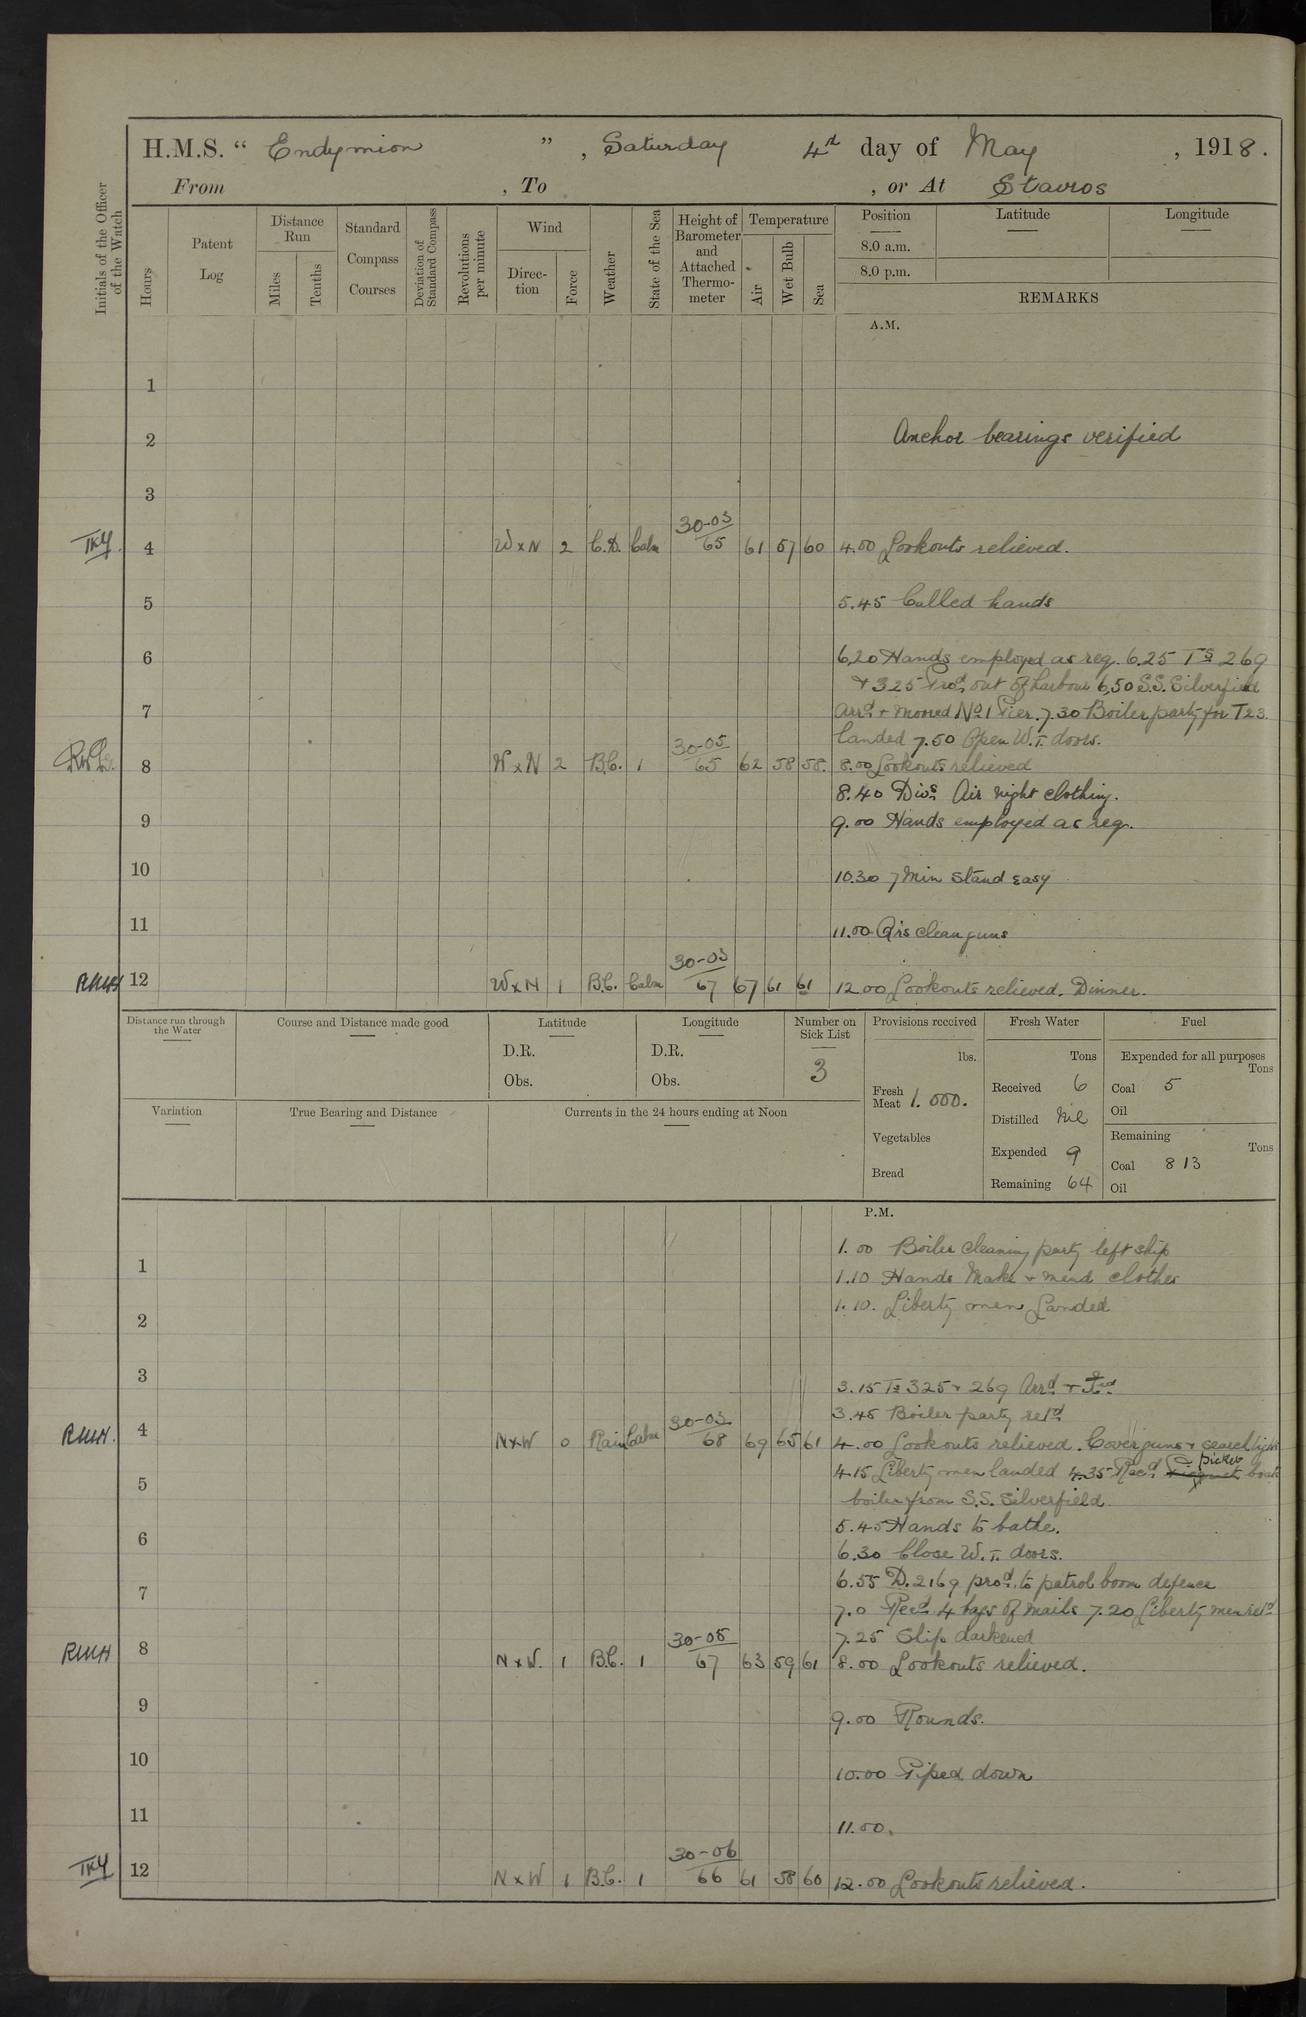 H.M.S. “ Endymion ” , Saturday 4th day of May , 1918.
From , To , or At Stavros
Initials of the Officer of the Watch
Hours
Patent Log
Distance Run
Miles
Tenths
Standard Compass Courses
Deviation of Standard Compass
Revolutions per minute
Wind
Direction
Force
Weather
State of the Sea
Height of Barometer and Attached Thermometer
Temperature
Air
Wet Bulb
Sea
Position
8.0 a.m.
8.0 p.m.
Latitude
Longitude
REMARKS
A.M.
1
2 Anchor bearings verified
3
TKY 4 W x N 2 C.D. Calm 30-03/65 61 57 60 4.00 Lookouts relieved.
5 5.45 Called hands
6 6.20 Hands employed as req. 6.25 Ts 269
+ 325 Prod out of harbour 6.50 S.S. Silverfield
7 Arrd + moored No 1 Pier. 7.30 Boiler party for T23
landed 7.50 Open W.T. doors.
8 W x N 2 B.C. 1 30-05/65 62 58 58. 8.00 Lookouts relieved
8.40 Divs. Air night clothing.
9 9.00 Hands employed as req.
10 10.30 7 Min Stand easy
11 11.00 Qrs clean guns
RMH 12 W x N 1 B.C. Calm 30-03/67 67 61 61 12.00 Lookouts relieved. Dinner.
Distance run through the Water
Course and Distance made good
Latitude
D.R.
Obs.
Longitude
D.R.
Obs.
Number on Sick List
3
Variation
True Bearing and Distance
Currents in the 24 hours ending at Noon
Provisions received
lbs.
Fresh Meat 1.000.
Vegetables
Bread
Fresh Water
Tons
Received 6
Distilled Nil
Expended 9
Remaining 64
Fuel
Expended for all purposes
Tons
Coal 5
Oil
Remaining
Tons
Coal 813
Oil
P.M.
1.00 Boiler cleaning party left ship
1 1.10 Hands Make + mend clothes
1.10. Liberty men Landed
2
3 3.15 Ts 325 + 269 Arrd +
3.45 Boiler party retd
RMH. 4 N x W 0 Rain Calm 30-03/68 69 65 61 4.00 Lookouts relieved. Cover guns + searchlights
4.15 Liberty men landed 4.35 Recd picket boat
5 boiler from S.S. Silverfield
5.45 Hands to bathe.
6 6.30 Close W.T. doors.
6.55 D.2169 prod. to patrol boom defence
7 7.0 Recd 4 bags of mails 7.20 Liberty men retd
7.25 Ship darkened
RMH 8 N x W. 1 B.C. 1 30-05/67 63 59 61 8.00 Lookouts relieved.
9 9.00 Rounds.
10 10.00 Piped down
11 11.00.
TKY 12 N x W 1 B.C. 1 30-06/66 61 58 60 12.00 Lookouts relieved.